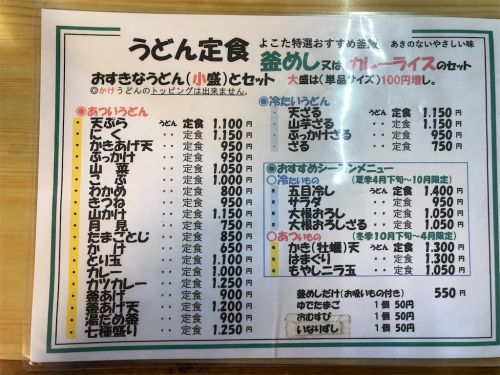 うどん定食 よこた特選おすすめ釜飯 あきのないやさしい味
釜めし又はカレーライスのセット
おすきなうどん(小盛)とセット 大盛は(単品サイズ)100円増し。
◎かけうどんのトッピングは出来ません。
◎あついうどん
天ぷら うどん 定食 1.100円
にく 〃 定食 1.100円
かきあげ天 〃 定食 950円
ぶっかけ 〃 定食 950円
山菜 〃 定食 1.050円
こぶ 〃 定食 1.000円
わかめ 〃 定食 800円
きつね 〃 定食 950円
山かけ 〃 定食 1.150円
月見 〃 定食 750円
たまごとじ 〃 定食 850円
かけ 〃 定食 650円
とり玉 〃 定食 1.100円
カレー 〃 定食 1.000円
カツカレー 〃 定食 1.250円
釜あげ 〃 定食 900円
釜あげ天 〃 定食 1.200円
湯だめ釜 〃 定食 900円
七種盛り 〃 定食 1.250円
◎冷たいうどん
天ざる うどん 定食 1.150円
山芋ざる 〃 定食 1.150円
ぶっかけざる 〃 定食 950円
ざる 〃 定食 750円
◎おすすめシーズンメニュー
○冷たいもの (夏季4月下旬〜10月限定)
五目冷し うどん 定食 1.400円
サラダ 〃 定食 950円
大根おろし 〃 定食 1.050円
大根おろしざる 〃 定食 1.050円
○あついもの (冬季10月下旬〜4月限定)
かき(牡蠣)天 うどん 定食 1.300円
はまぐり 〃 定食 1.300円
もやしニラ玉 〃 定食 1.050円
釜めしだけ(お吸いもの付き) 550円
ゆでたまご 1個 50円
おむすび 1個 50円
いなりずし 1個 50円